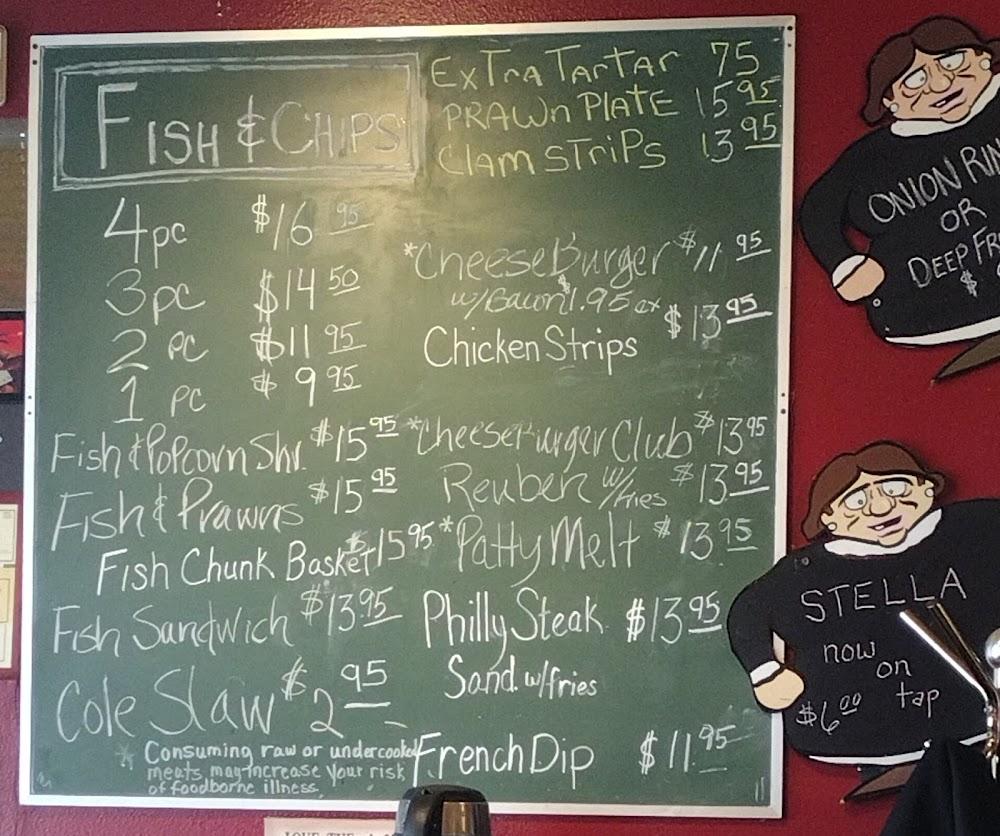 FISH & CHIPS
4 pc $16 95
3 pc $14 50
2 pc $11 95
1 pc $9 95
Fish & Popcorn Shr. $15 95
Fish & Prawns $15 95
Fish Chunk Basket $15 95
Fish Sandwich $13.95
Cole Slaw $2 95
* Consuming raw or undercooked
meats, may increase your risk
of foodborne illness.
ExTra TarTar 75
PRAWn PLATE 15 95
Clam STriPs 13 95
*CheeseBurger $11 95
w/Bacon $1.95 ex
Chicken Strips $13 95
*CheeseBurger Club $13 95
Reuben w/fries $13.95
*Patty Melt $13 95
Philly Steak $13 95
Sand. w/fries
French Dip $11.95
ONION RIN
OR
DEEP FR
$
STELLA
now
on
tap
$6 00